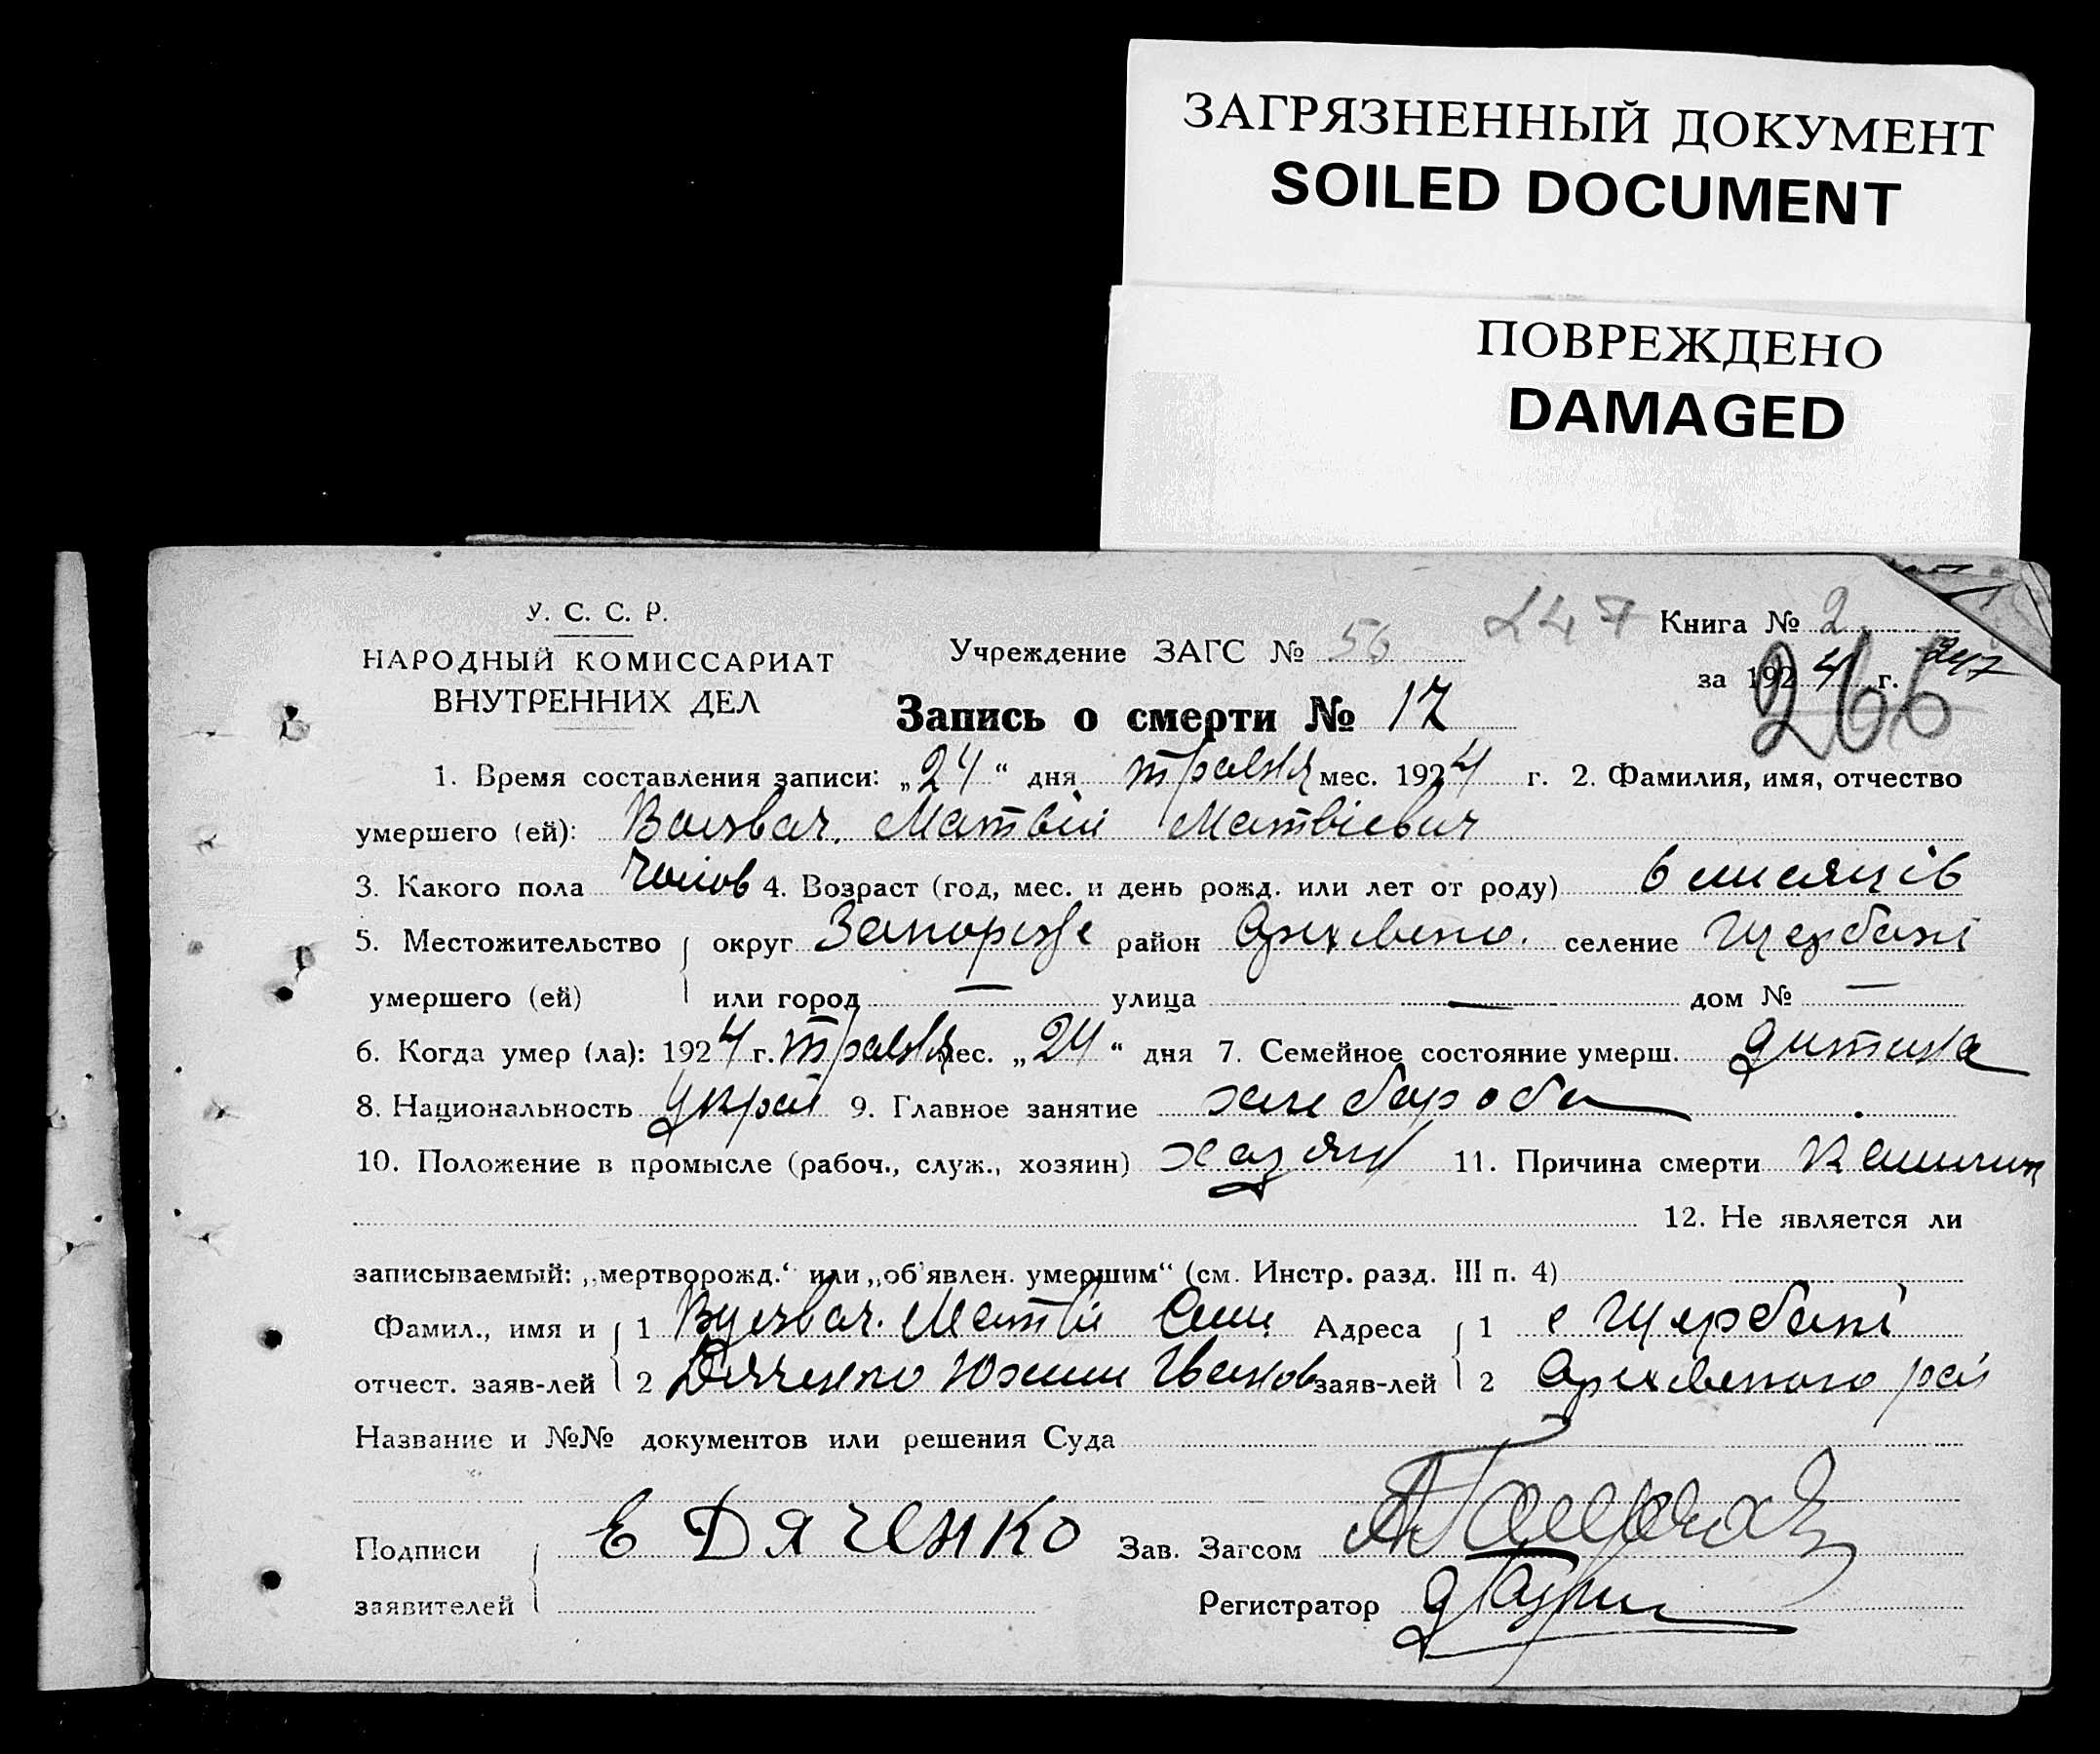 ЗАГРЯЗНЕННЫЙ ДОКУМЕНТ
SOILED DOCUMENT
ПОВРЕЖДЕНО
DAMAGED
У. С. С. Р.
НАРОДНЫЙ КОМИССАРИАТ
ВНУТРЕННИХ ДЕЛ
Учреждение ЗАГС № 56
247
Книга № 2
за 1924 г. 247
266
Запись о смерти № 17
1. Время составления записи: „24“ дня травня мес. 1924 г. 2. Фамилия, имя, отчество
умершего (ей): Матвій Матвієвич
3. Какого пола чолов 4. Возраст (год, мес. и день рожд. или лет от роду) 6 мисяців
5. Местожительство округ Запоріжже район Оріхівсько. селение Щербакі
умершего (ей) или город — улица — дом № —
6. Когда умер (ла): 1924 г. травня мес. „24“ дня 7. Семейное состояние умерш. дитина
8. Национальность Украї 9. Главное занятие хлібороба
10. Положение в промысле (рабоч., служ., хозяин) хазяїн 11. Причина смерти
12. Не является ли
записываемый: „мертворожд.“ или „об'явлен. умершим“ (см. Инстр. разд. III п. 4)
Фамил., имя и 1 Матвій Адреса 1 с Щербакі
отчест. заяв-лей 2 Дяченко Юхим Іванов заяв-лей 2 Оріхівського рай
Название и №№ документов или решения Суда
Подписи Е ДяченКо Зав. Загсом
заявителей Регистратор